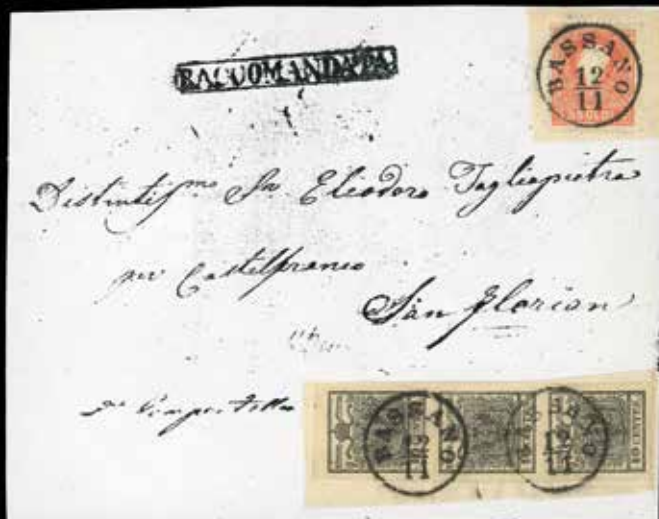 RACCOMANDATA
BASSANO
12
11
Distintissmo Sr Eliodoro Tagliapietra
per Castelfranco
San Florian
BASSANO
12
11
BASSANO
12
11
10 CENTES
10 CENTES